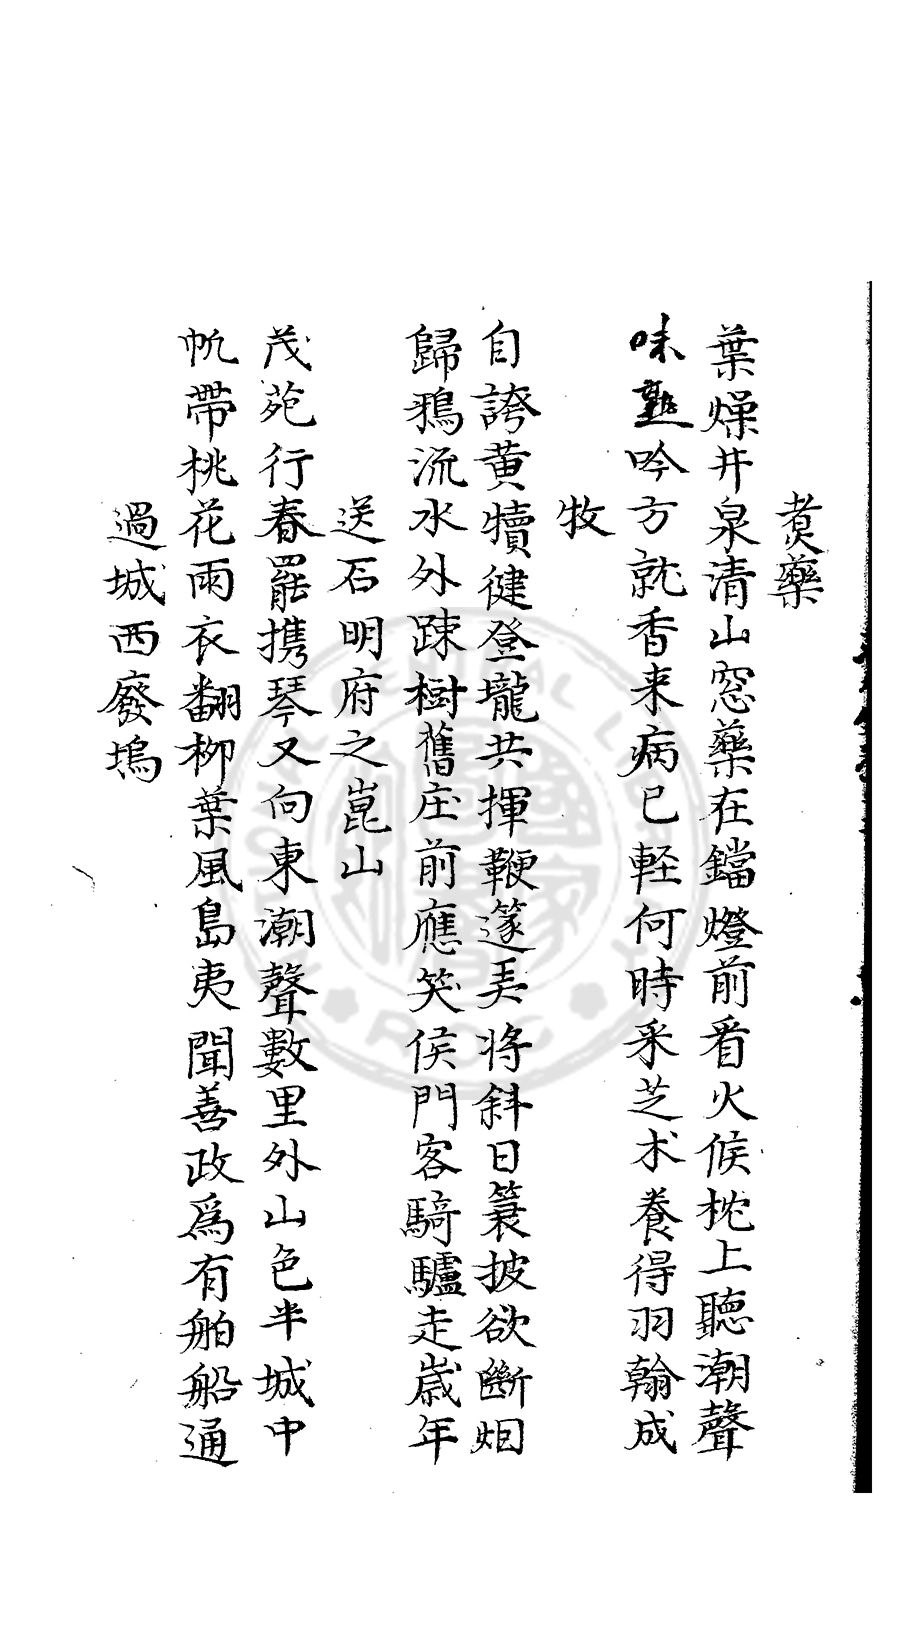 煑藥
葉燥井泉清山窓藥在鐺燈前看火候枕上聽潮聲
味熟吟方就香来病已軽何時采芝术養得羽翰成
牧
自誇黄犢健登壠共揮鞭邃弄将斜日簑披欲斷烟
歸鴉流水外踈樹舊庄前應笑侯門客騎驢走嵗年
送石明府之崑山
茂苑行春罷携琴又向東潮聲數里外山色半城中
帆帶桃花雨衣翻柳葉風島夷聞善政爲有舶船通
過城西廢塢